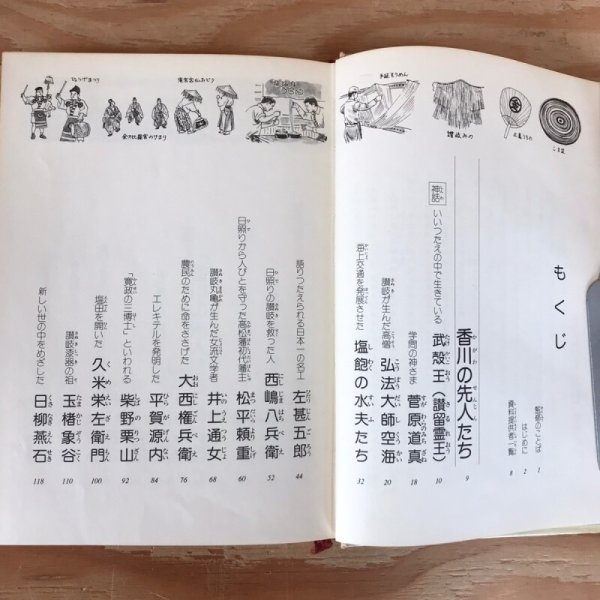 手延そうめん
讃岐みの
丸亀うちわ
ひょうげまつり
滝宮念仏おどり
金刀比羅宮のけまり
もくじ
監修のことば 1
はじめに 2
資料提供者一覧 8
香川の先人たち 9
神話 いいつたえの中で生きている 武殻王(讃留霊王) 10
学問の神さま 菅原道真 18
讃岐が生んだ高僧 弘法大師空海 20
海上交通を発展させた 塩飽の水夫たち 32
語りつたえられる日本一の名工 左甚五郎 44
日照りの讃岐を救った人 西嶋八兵衛 52
日照りから人びとを守った高松藩初代藩主 松平頼重 60
讃岐丸亀が生んだ女流文学者 井上通女 68
農民のために命をささげた 大西権兵衛 76
エレキテルを発明した 平賀源内 84
「寛政の三博士」といわれる 柴野栗山 92
塩田を開いた 久米栄左衛門 100
讃岐漆器の祖 玉楮象谷 110
新しい世の中をめざした 日柳燕石 118